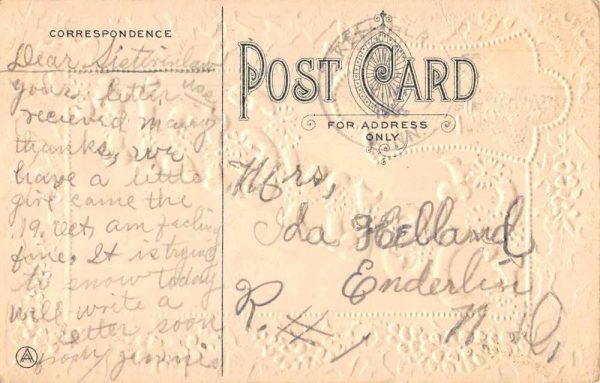 CORRESPONDENCE
POST CARD
FOR ADDRESS
ONLY
Dear Sisterinlaw
your letter was
recieved many
thanks, we
have a little
girl came the
19. Oct, am feeling
fine. It is trying
to snow today
will write a
letter soon
from Jennie
Mrs,
Ida Helland,
Enderlin
R. #1
N. D.
A